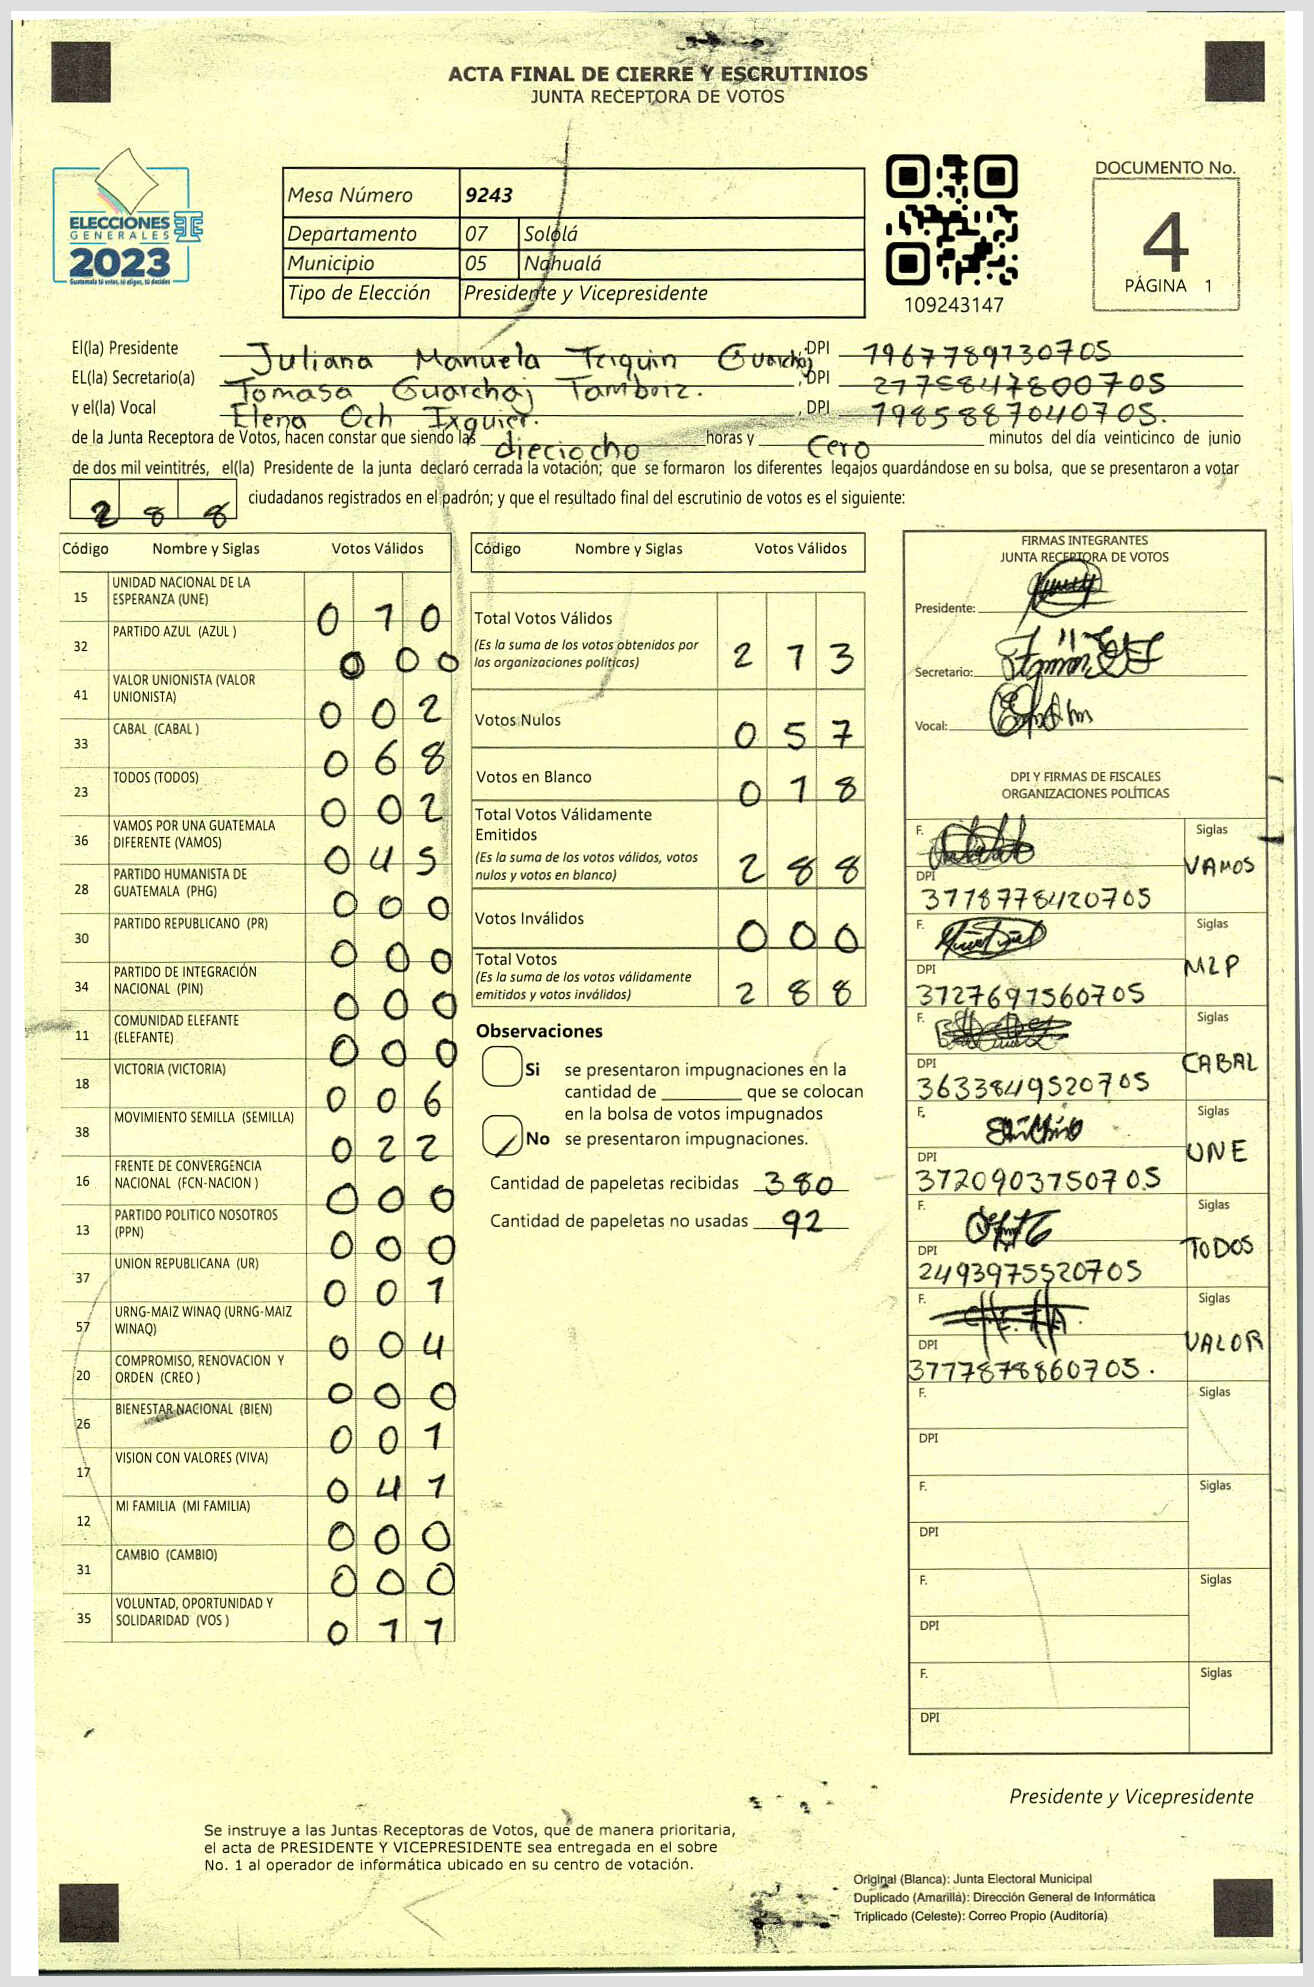 ACTA FINAL DE CIERRE Y ESCRUTINIOS
JUNTA RECEPTORA DE VOTOS
ELECCIONES
GENERALES
2023
Guatemala tú votas, tú eliges, tú decides
Mesa Número 9243
Departamento 07 Sololá
Municipio 05 Nahualá
Tipo de Elección Presidente y Vicepresidente
109243147
DOCUMENTO No.
4
PÁGINA 1
El(la) Presidente Juliana Manuela Tzquin Guarchaj, DPI 1967789730705
EL(la) Secretario(a) Tomasa Guarchaj Tambriz., DPI 2775847800705
y el(la) Vocal Elena Och Ixquier., DPI 1985887040705.
de la Junta Receptora de Votos, hacen constar que siendo las dieciocho horas y cero minutos del día veinticinco de junio
de dos mil veintitrés, el(la) Presidente de la junta declaró cerrada la votación; que se formaron los diferentes legajos guardándose en su bolsa, que se presentaron a votar
288 ciudadanos registrados en el padrón; y que el resultado final del escrutinio de votos es el siguiente:
Código Nombre y Siglas Votos Válidos
15 UNIDAD NACIONAL DE LA
ESPERANZA (UNE) 0 7 0
32 PARTIDO AZUL (AZUL ) 0 0 0
41 VALOR UNIONISTA (VALOR
UNIONISTA) 0 0 2
33 CABAL (CABAL ) 0 6 8
23 TODOS (TODOS) 0 0 2
36 VAMOS POR UNA GUATEMALA
DIFERENTE (VAMOS) 0 4 5
28 PARTIDO HUMANISTA DE
GUATEMALA (PHG) 0 0 0
30 PARTIDO REPUBLICANO (PR) 0 0 0
34 PARTIDO DE INTEGRACIÓN
NACIONAL (PIN) 0 0 0
11 COMUNIDAD ELEFANTE
(ELEFANTE) 0 0 0
18 VICTORIA (VICTORIA) 0 0 6
38 MOVIMIENTO SEMILLA (SEMILLA) 0 2 2
16 FRENTE DE CONVERGENCIA
NACIONAL (FCN-NACION ) 0 0 0
13 PARTIDO POLITICO NOSOTROS
(PPN) 0 0 0
37 UNION REPUBLICANA (UR) 0 0 1
57 URNG-MAIZ WINAQ (URNG-MAIZ
WINAQ) 0 0 4
20 COMPROMISO, RENOVACION Y
ORDEN (CREO ) 0 0 0
26 BIENESTAR NACIONAL (BIEN) 0 0 1
17 VISION CON VALORES (VIVA) 0 4 1
12 MI FAMILIA (MI FAMILIA) 0 0 0
31 CAMBIO (CAMBIO) 0 0 0
35 VOLUNTAD, OPORTUNIDAD Y
SOLIDARIDAD (VOS ) 0 1 1
Código Nombre y Siglas Votos Válidos
Total Votos Válidos
(Es la suma de los votos obtenidos por
las organizaciones políticas) 2 7 3
Votos Nulos 0 5 7
Votos en Blanco 0 1 8
Total Votos Válidamente
Emitidos
(Es la suma de los votos válidos, votos
nulos y votos en blanco) 2 8 8
Votos Inválidos 0 0 0
Total Votos
(Es la suma de los votos válidamente
emitidos y votos inválidos) 2 8 8
Observaciones
Si se presentaron impugnaciones en la
cantidad de ________ que se colocan
en la bolsa de votos impugnados
No se presentaron impugnaciones.
Cantidad de papeletas recibidas 380
Cantidad de papeletas no usadas 92
FIRMAS INTEGRANTES
JUNTA RECEPTORA DE VOTOS
Presidente:
Secretario:
Vocal:
DPI Y FIRMAS DE FISCALES
ORGANIZACIONES POLÍTICAS
F. Siglas
VAMOS
DPI
3778778420705
F. Siglas
MLP
DPI
3727697560705
F. Siglas
CABAL
DPI
3633849520705
F. Siglas
UNE
DPI
3720903750705
F. Siglas
TODOS
DPI
2493975520705
F. Siglas
VALOR
DPI
3777878860705.
F. Siglas
DPI
F. Siglas
DPI
F. Siglas
DPI
F. Siglas
DPI
Presidente y Vicepresidente
Se instruye a las Juntas Receptoras de Votos, que de manera prioritaria,
el acta de PRESIDENTE Y VICEPRESIDENTE sea entregada en el sobre
No. 1 al operador de informática ubicado en su centro de votación.
Original (Blanca): Junta Electoral Municipal
Duplicado (Amarilla): Dirección General de Informática
Triplicado (Celeste): Correo Propio (Auditoría)